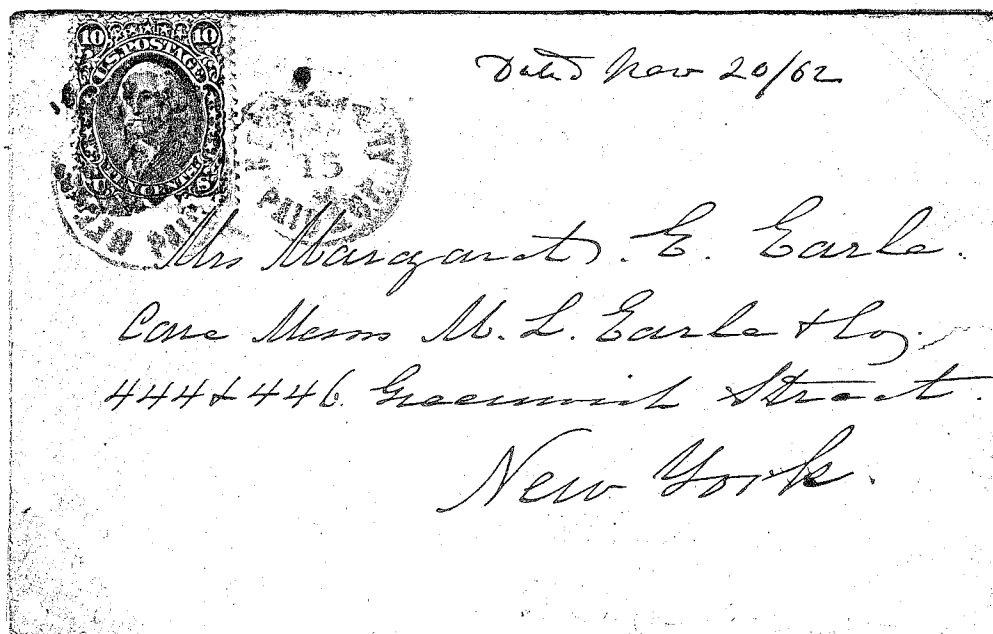 10 10
U.S. POSTAGE
TEN CENTS
Dated Nov 20/62
15
PAID
Mrs Margaret. E. Earle.
Care Messrs M. L. Earle & Co.
444 & 446. Greenwich Street.
New York.